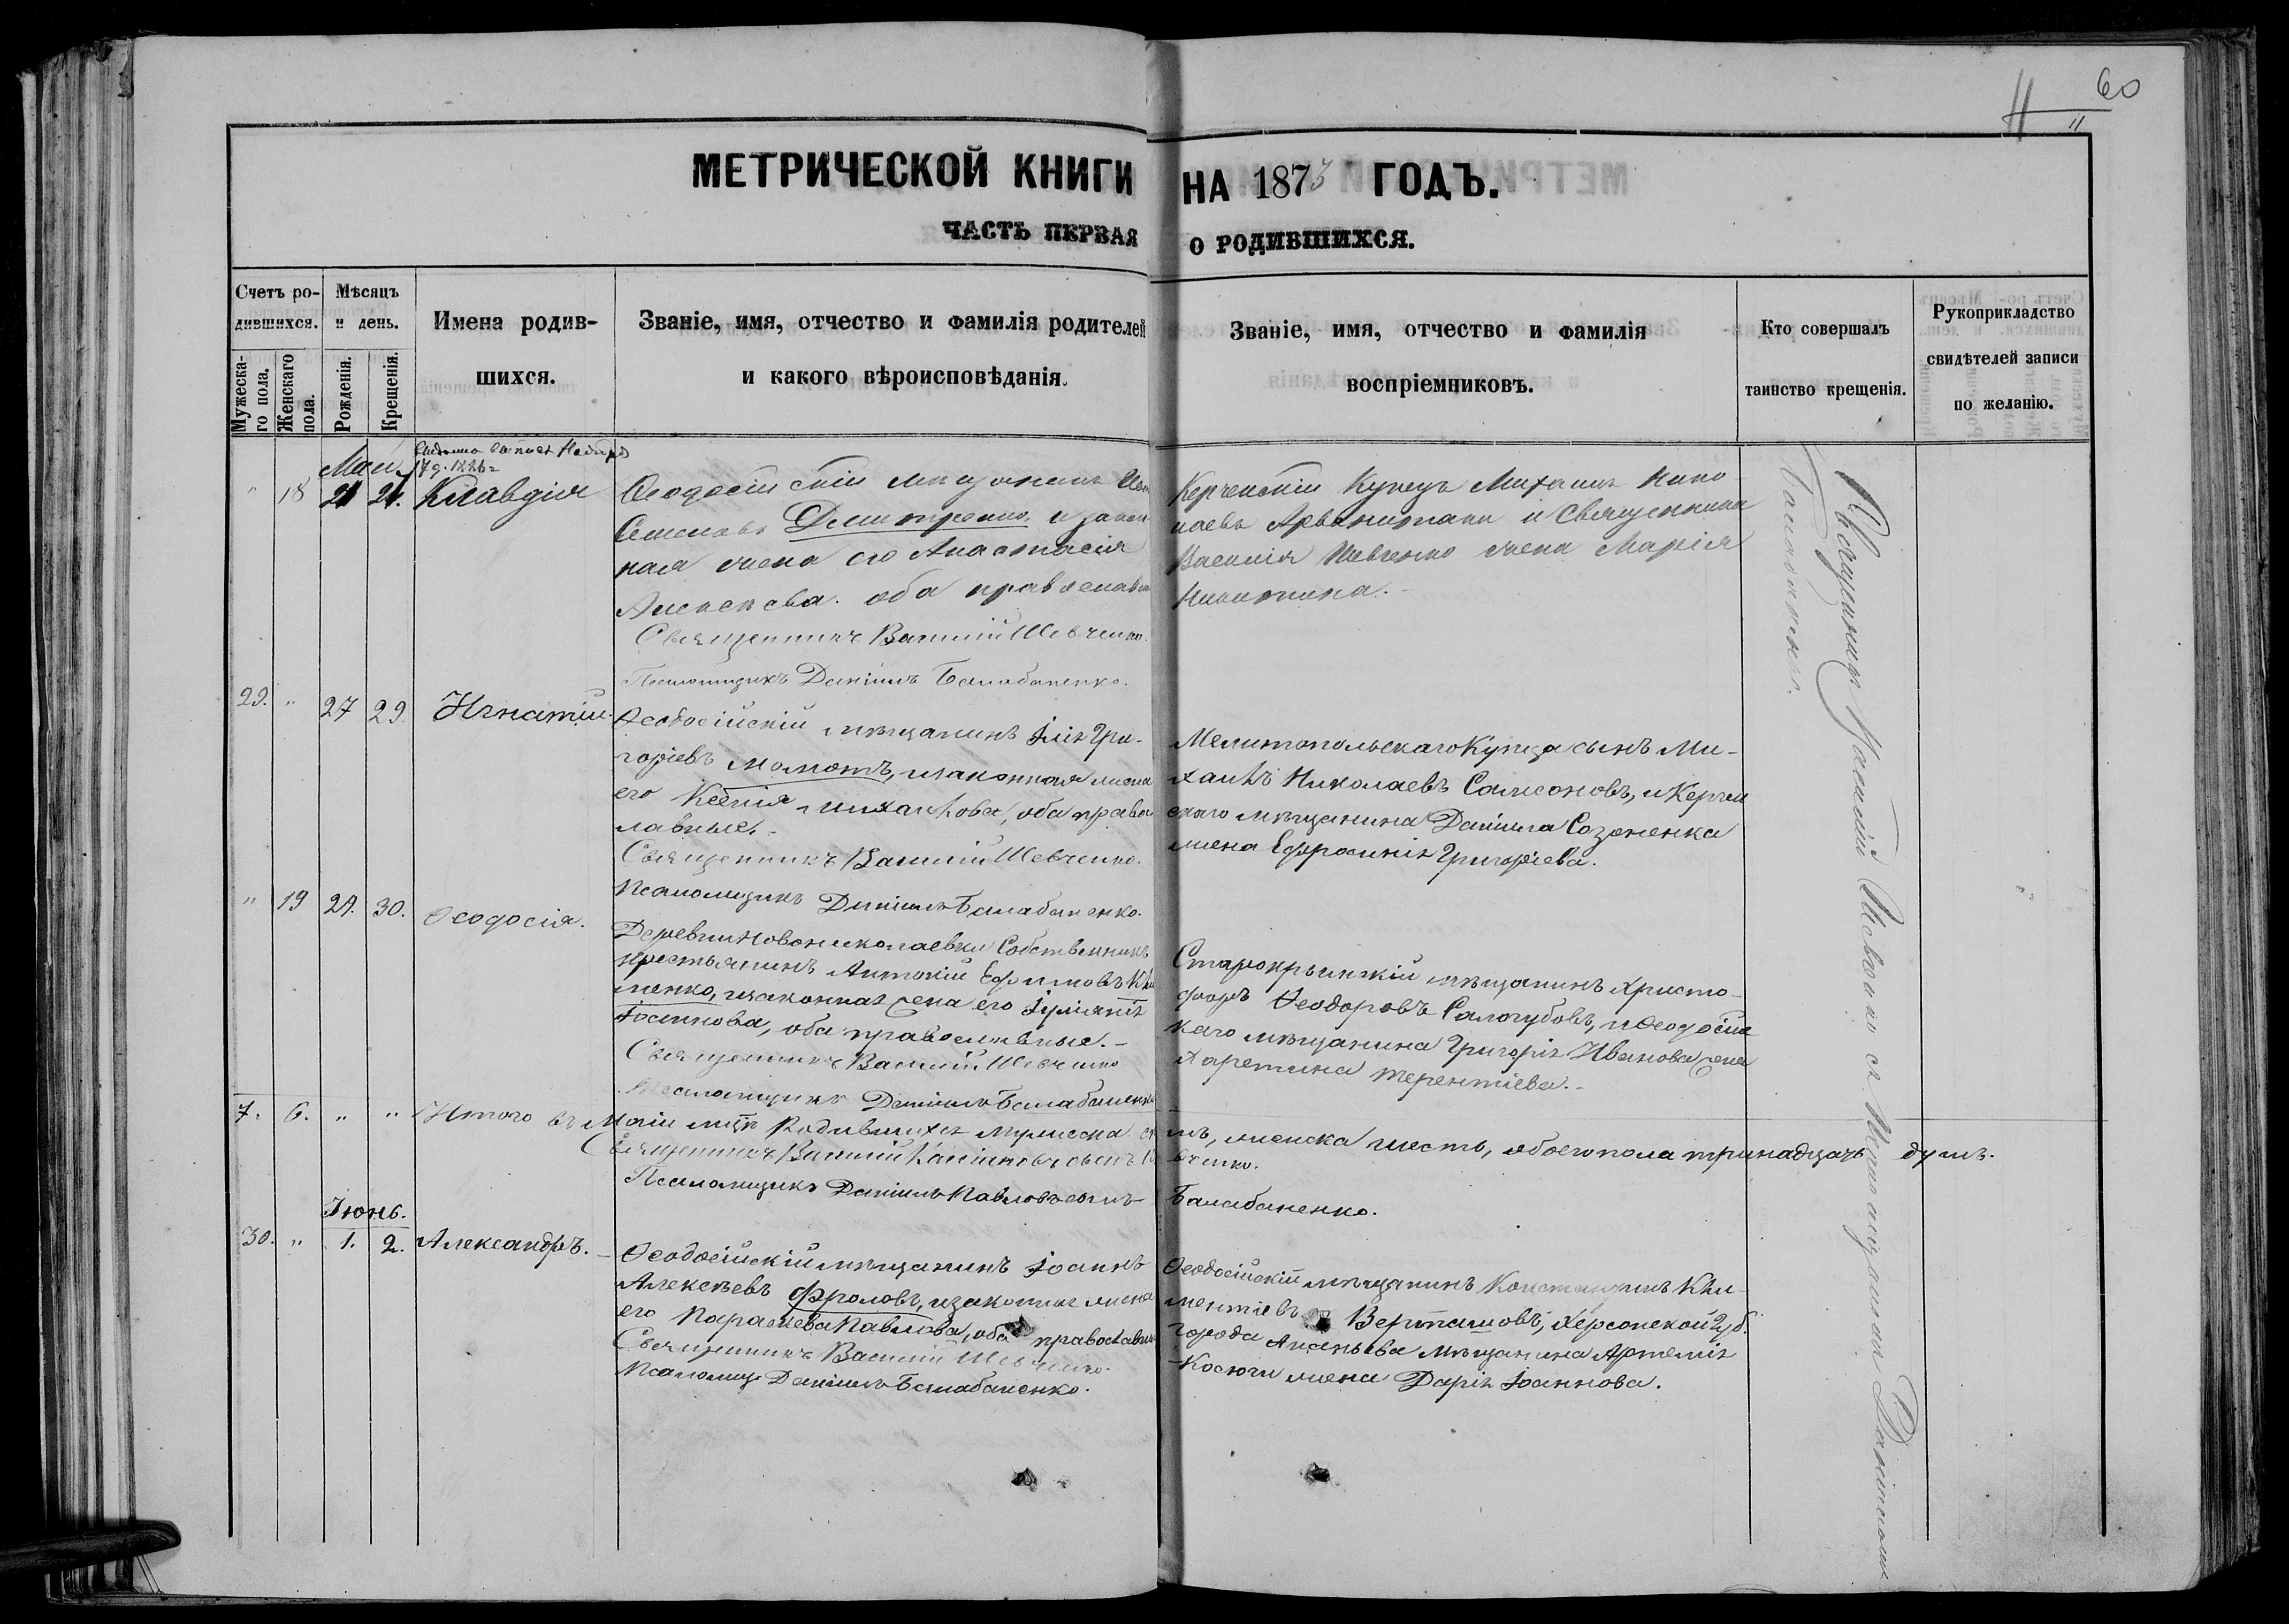 60
11
МЕТРИЧЕСКОЙ КНИГИ НА 1873 ГОДЪ.
ЧАСТЬ ПЕРВАЯ О РОДИВШИХСЯ.
Счетъ ро-
дившихся.
Мужеска-
го пола.
Женскаго
пола.
Мѣсяцъ
и день.
Рожденія.
Крещенія.
Имена родив-
шихся.
Званіе, имя, отчество и фамилія родителей
и какого вѣроисповѣданія.
Званіе, имя, отчество и фамилія
воспріемниковъ.
Кто совершалъ
таинство крещенія.
Рукоприкладство
свидѣтелей записи
по желанію.
Май
" 18 21 21. Клавдія
Ѳеодосійскій мѣщанинъ
Семеновъ Дмитренко, и закон
ная жена его Анастасія
Алексѣева. оба православн
Священникъ Василій Шевченко.
Псаломщикъ Даніилъ Балабаненко.
Керченскій Купецъ Михаилъ Нико
лаевъ Арванитаки и Священника
Василія Шевченко жена Марія
Никитина.
29. " 27 29. Игнатій.
Ѳеодосійскій мѣщанинъ Илія Гри-
горіевъ Мамотъ, и законная жена
его Ксенія Михайлова, оба право
лавные.
Священникъ Василій Шевченко.
Псаломщикъ Даніилъ Балабаненко.
Мелитопольскаго Купца сынъ Ми-
хаилъ Николаевъ Самсоновъ, и Керчен
скаго мѣщанина Даніила Созоненка
жена Ефросинія Григоріева.
" 19 29. 30. Ѳеодосія.
Деревни Новониколаевки Собственникъ
крестьянинъ Антоній Ефимовъ Кли
менко, и законная жена его Іуліанія
Іоаннова, оба православные.
Священникъ Василій Шевченко
Псаломщикъ Даніилъ Балабаненко
Старокрымскій мѣщанинъ Христо-
форъ Ѳеодоровъ Салогубовъ, и Ѳеодосійс
каго мѣщанина Григорія Иванова жена
Харетина Терентіева.
7. 6. " " Итого въ Маіи мцѣ родившихся мужеска се мъ, женска шесть, обоего пола тринадцать душъ.
Священникъ Василій Касіановъ сынъ Ше вченко.
Псаломщикъ Даніилъ Павловъ сынъ Балабаненко.
Іюнь.
30. " 1. 2. Александръ.
Ѳеодосійскій мѣщанинъ Іоаннъ
Алексѣевъ Фроловъ, и законная жена
его Параскева Павлова, оба православн
Священникъ Василій Шевченко.
Псаломщ Даніилъ Балабаненко.
Ѳеодосійскій мѣщанинъ Константинъ Кли-
ментіевъ Верташовъ, Херсонской Губ.
города Ананьева мѣщанина Артемія
Косючи жена Дарія Іоаннова.
Священникъ Василій Шевченко съ Псаломщикомъ Даніиломъ
Балабаненко.